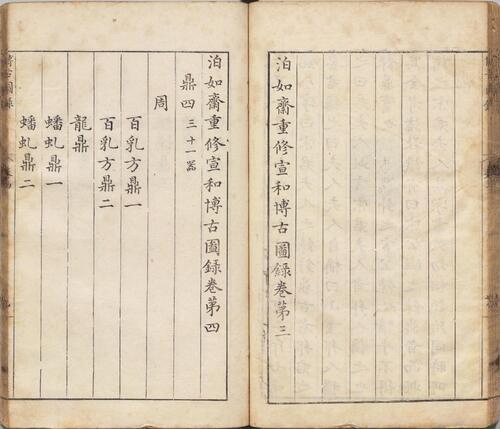 泊如齋重修宣和博古圖錄卷第三
泊如齋重修宣和博古圖錄卷第四
鼎四 三十一器
周
百乳方鼎一
百乳方鼎二
龍鼎
蟠虬鼎一
蟠虬鼎二